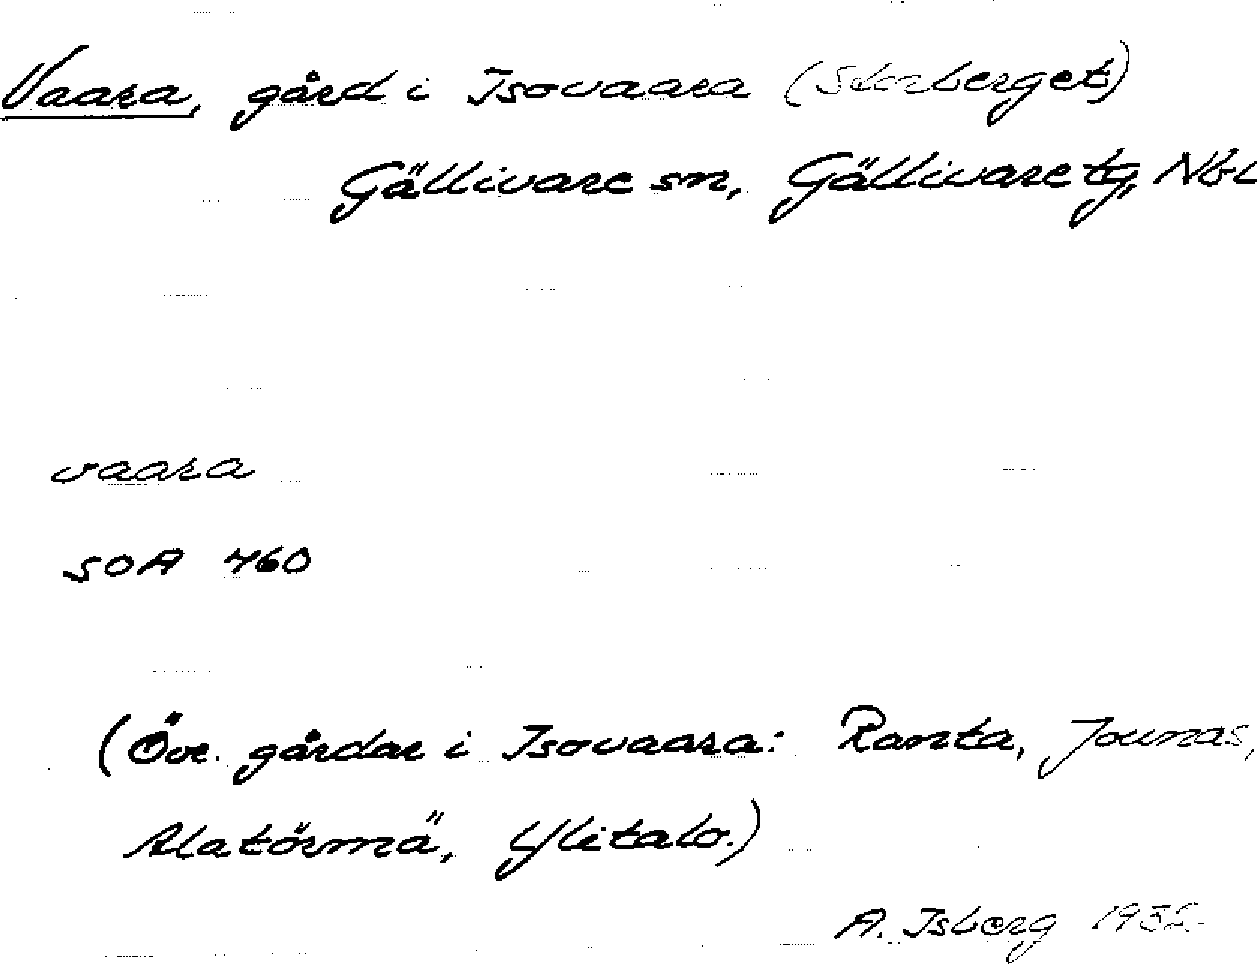 Vaara, gård i Isovaara (Storberget)
Gällivare sn, Gällivare tg, Nbl
vaara
SOA 460
(Öve. gårdar i Isovaara: Ranta, Jounas,
Alatörmä, Ylitalo.)
A. Isberg